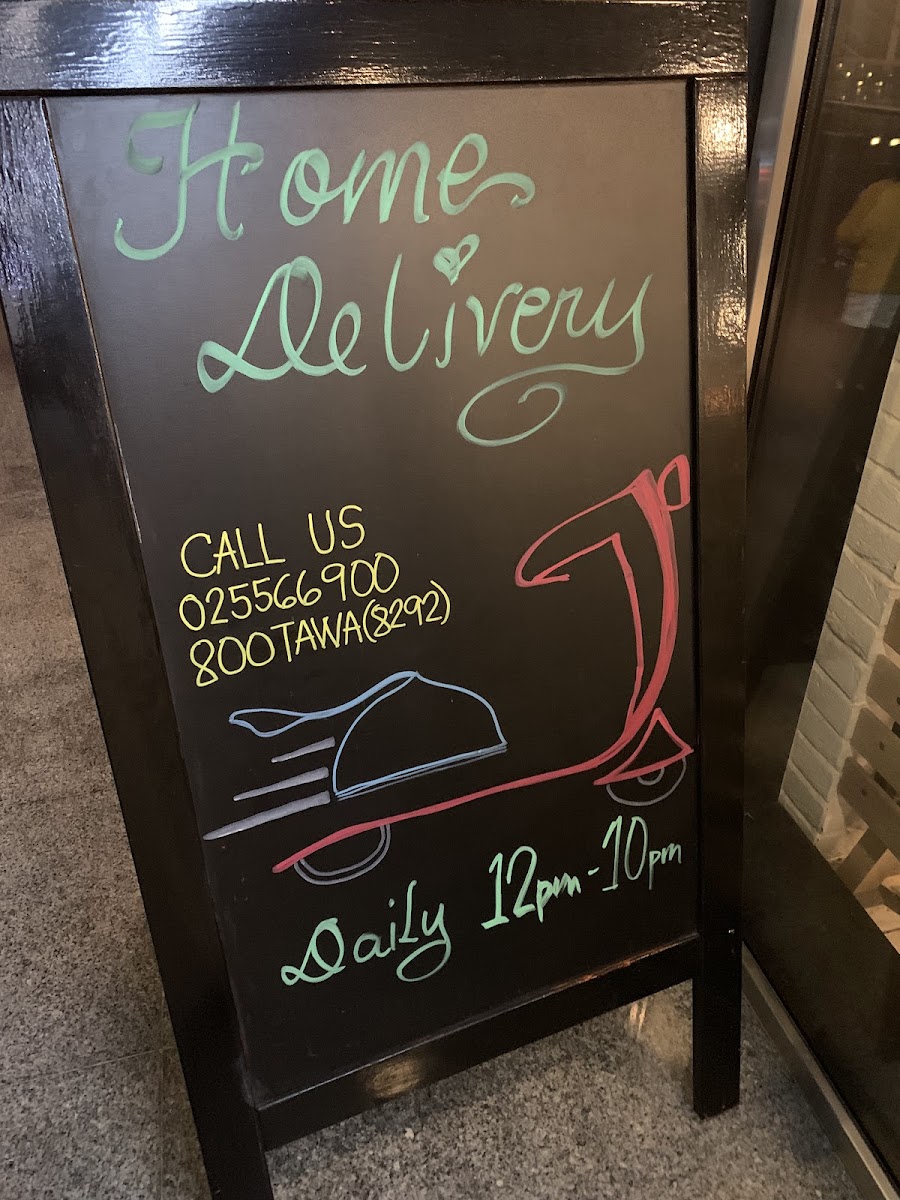 Home
Delivery
CALL US
025566900
800TAWA(8292)
Daily 12pm-10pm